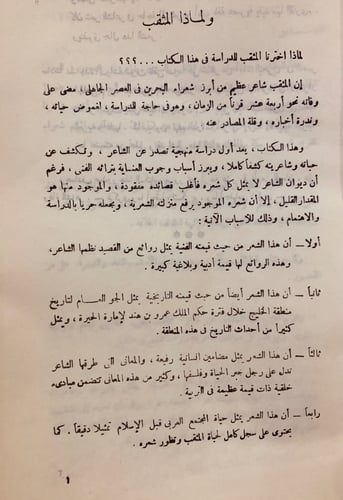 ولماذا المثقب
لماذا اخترنا المثقب للدراسة في هذا الكتاب . . . ؟؟؟
إن المثقب شاعر عظيم من أبرز شعراء البحرين في العصر الجاهلي ، مضى على
وفاته نحو أربعة عشر قرناً من الزمان ، وهو في حاجة للدراسة ، لغموض حياته ،
وندرة أخباره ، وقلة المصادر عنه .
وهذا الكتاب ، يعد أول دراسة منهجية تصدر عن الشاعر ، وتكشف عن
حياته وشاعريته كشفاً كاملا ، ويبرز أسباب وجوب العناية بتراثه الفني ، فرغم
أن ديوان الشاعر لا يمثل كل شعره فأغلب قصائده مفقودة ، والموجود منها هو
المقدار القليل ، إلا أن شعره الموجود يرفع منزلته الشعرية ، ويجعله حرياً بالدراسة
والاهتمام ، وذلك للأسباب الآتية :
أولا – أن هذا الشعر من حيث قيمته الفنية يمثل روائع من القصيد نظمها الشاعر ،
وهذه الروائع لها قيمة أدبية وبلاغية كبيرة .
ثانياً – أن هذا الشعر أيضاً من حيث قيمته التاريخية يمثل الجو العام لتاريخ
منطقة الخليج خلال فترة حكم الملك عمرو بن هند لإمارة الحيرة ، ويمثل
كثيراً من أحداث التاريخ في هذه المنطقة .
ثالثاً – أن هذا الشعر يمثل مضامين انسانية رفيعة ، والمعاني التي طرقها الشاعر
تدل على رجل خبر الحياة وفلسفها ، وكثير من هذه المعاني تتضمن مبادىء
خلقية ذات قيمة عظيمة في التربية .
رابعاً – أن هذا الشعر يمثل حياة المجتمع العربي قبل الإسلام تمثيلا دقيقاً . كما
يحتوى على سجل كامل لحياة المثقب وتطور شعره .